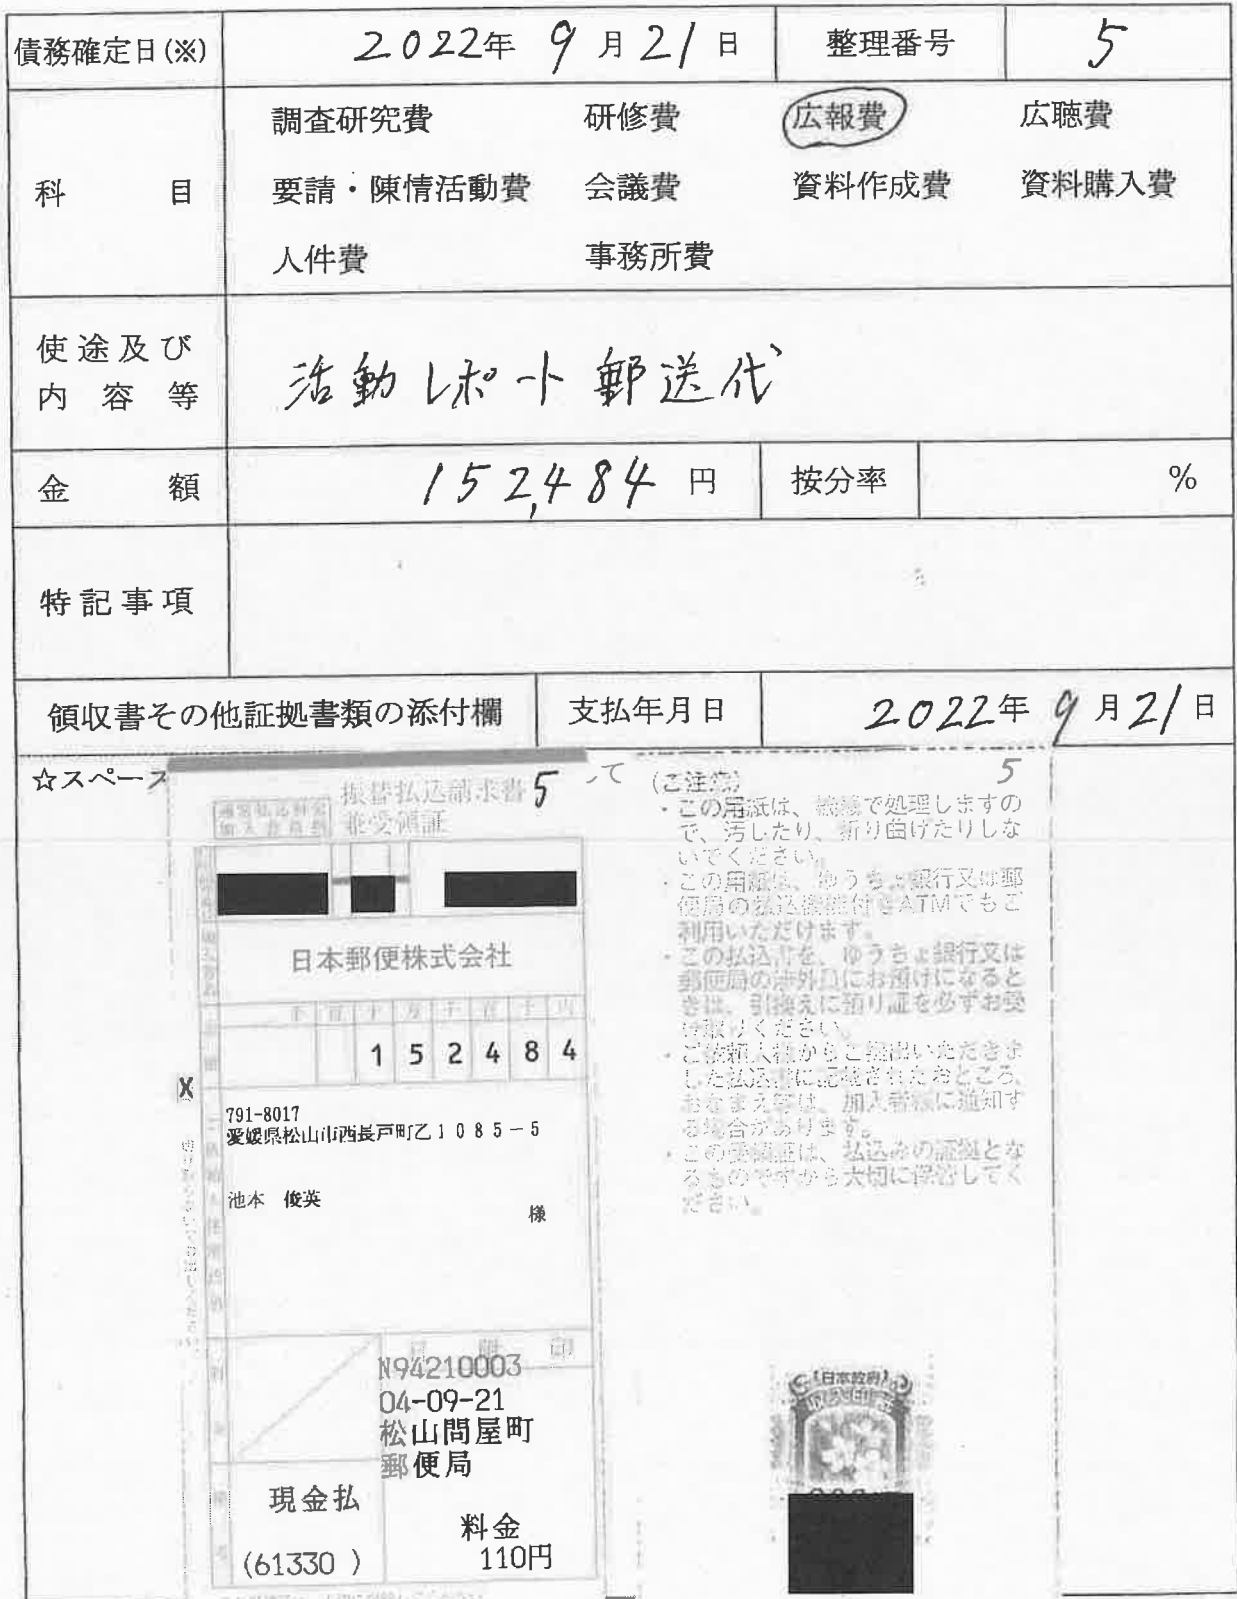 債務確定日(※) 2022年 9月21日 整理番号 5
科 目
調査研究費 研修費 広報費 広聴費
要請・陳情活動費 会議費 資料作成費 資料購入費
人件費 事務所費
使途及び
内容等
活動レポート郵送代
金 額 152,484 円 按分率 %
特記事項
領収書その他証拠書類の添付欄 支払年月日 2022年 9月21日
☆スペース
って
振替払込請求書 5
兼受領証
日本郵便株式会社
千 百 十 万 千 百 十 円
1 5 2 4 8 4
X
791-8017
愛媛県松山市西長戸町乙1085-5
池本 俊英
様
印
N94210003
04-09-21
松山問屋町
郵便局
現金払
(61330 )
料金
110円
(ご注意) 5
・この用紙は、機械で処理しますの
で、汚したり、折り曲げたりしな
いでください。
・この用紙は、ゆうちょ銀行又は郵
便局の払込機能付きATMでもご
利用いただけます。
・この払込書を、ゆうちょ銀行又は
郵便局の渉外員にお預けになると
きは、引換えに預り証を必ずお受
け取りください。
・ご依頼人様からご提出いただきま
した払込書に記載されたおところ、
おなまえ等は、加入者様に通知す
る場合があります。
・この受領証は、払込みの証拠とな
るものですから大切に保管してく
ださい。
日本政府
収入印紙